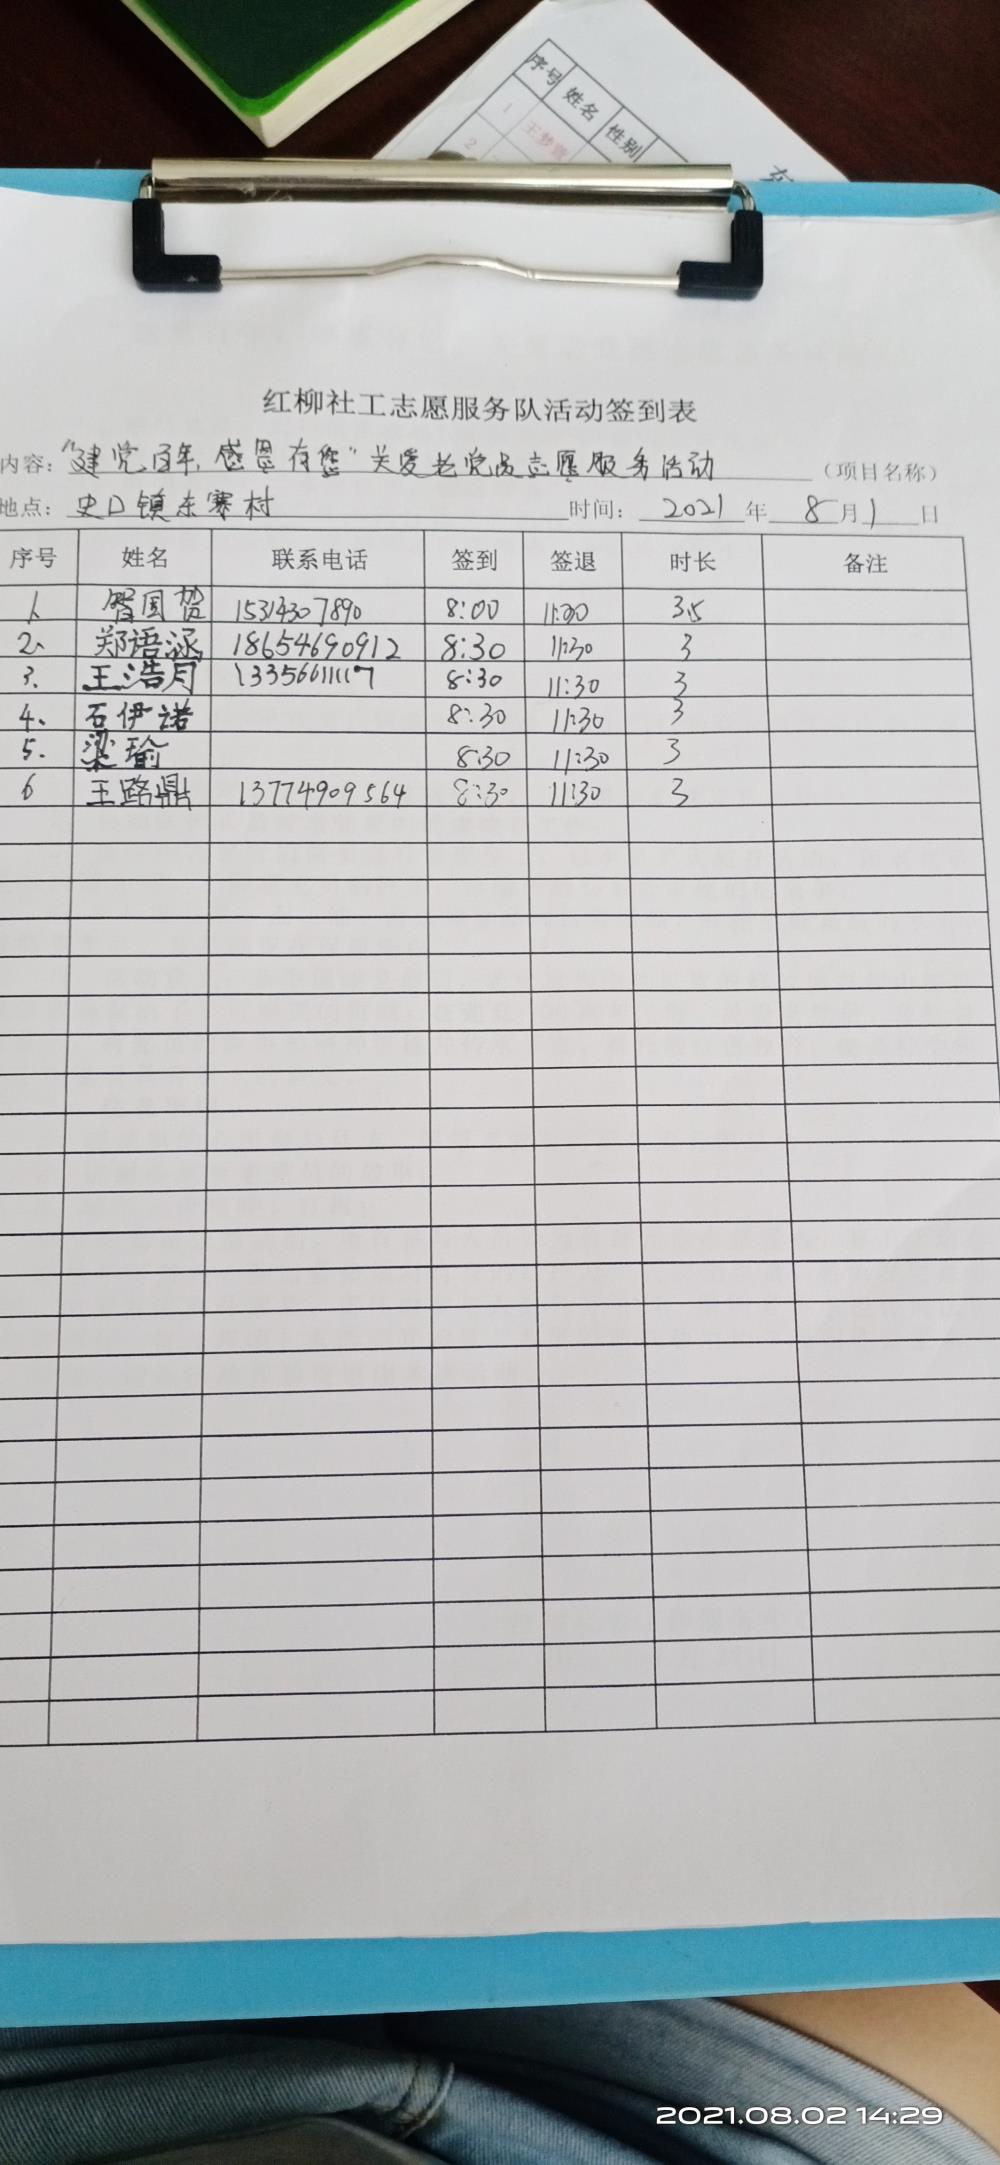 序号 姓名 性别
1 王梦萱
2
红柳社工志愿服务队活动签到表
内容：“建党百年，感恩有您”关爱老党员志愿服务活动（项目名称）
地点：史口镇东寨村 时间：2021年8月1日
序号 姓名 联系电话 签到 签退 时长 备注
1、 国贺 15314307890 8:00 3.5
2、 郑语涵 18654690912 8:30 11:30 3
3、 王浩月 13356611117 8:30 11:30 3
4、 石伊诺 8:30 11:30 3
5、 梁瑜 8:30 11:30 3
6 王路鼎 13774909564 8:30 11:30 3
2021.08.02 14:29